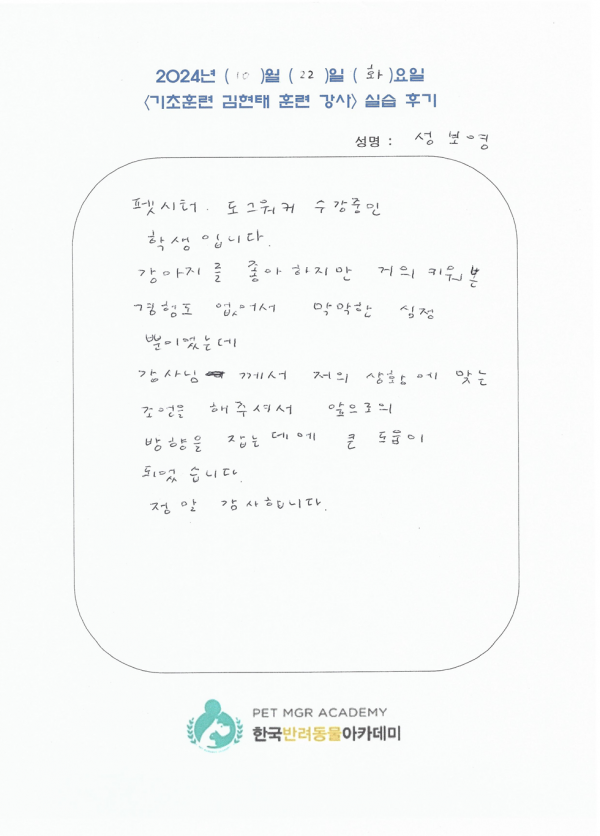 2024년 ( 10 )월 ( 22 )일 ( 화 )요일
<기초훈련 김현태 훈련 강사> 실습 후기
성명 : 성보영
펫시터. 도그워커 수강중인
학생입니다.
강아지를 좋아하지만 거의 키워본
경험도 없어서 막막한 심정
뿐이었는데
강사님께서 저의 상황에 맞는
조언을 해주셔서 앞으로의
방향을 잡는데에 큰 도움이
되었습니다.
정말 감사합니다.
PET MGR ACADEMY
한국반려동물아카데미